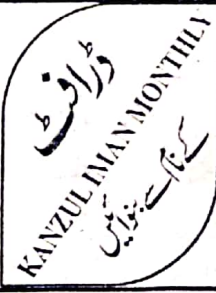 ڈرافٹ
KANZUL IMAN MONTHLY
کے نام سے بنوائیں